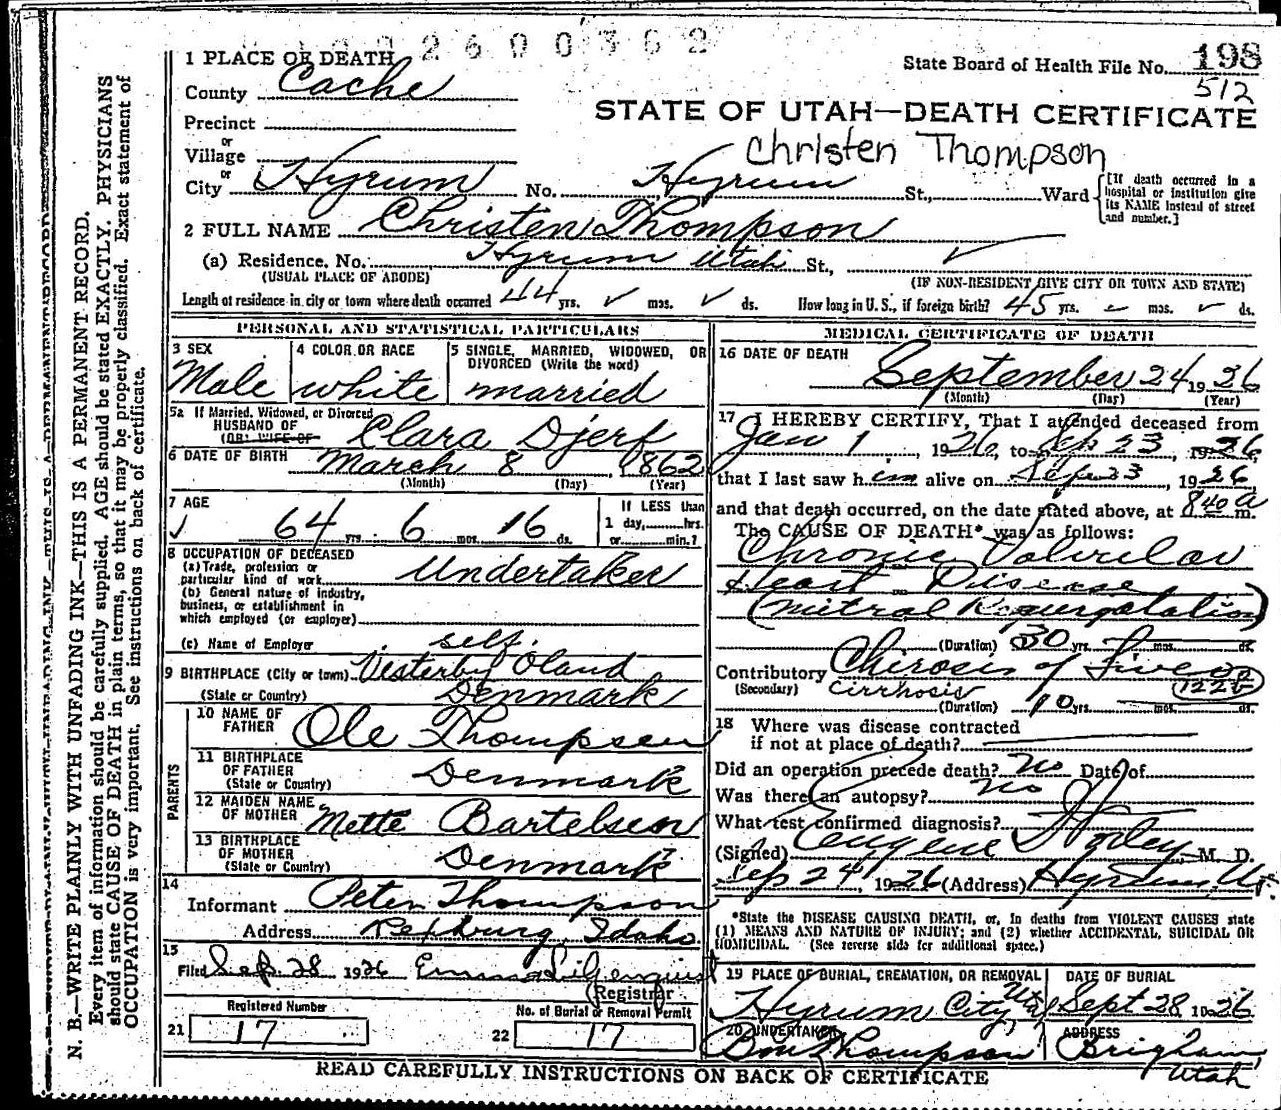 2600362
1 PLACE OF DEATH
State Board of Health File No. 198
512
County Cache
STATE OF UTAH—DEATH CERTIFICATE
Precinct
Christen Thompson
or
Village
or
City Hyrum No. Hyrum St., Ward
[If death occurred in a
hospital or institution give
its NAME instead of street
and number.]
2 FULL NAME Christen Thompson
(a) Residence. No. Hyrum Utah St.,
(USUAL PLACE OF ABODE) (IF NON-RESIDENT GIVE CITY OR TOWN AND STATE)
Length of residence in city or town where death occurred 44 yrs. mos. ds. How long in U. S., if foreign birth? 45 yrs. mos. ds.
PERSONAL AND STATISTICAL PARTICULARS
3 SEX 4 COLOR OR RACE 5 SINGLE, MARRIED, WIDOWED, OR
DIVORCED (Write the word)
Male white married
5a If Married, Widowed, or Divorced
HUSBAND OF
(OR) WIFE OF Clara Djerf
6 DATE OF BIRTH March 8, 1862
(Month) (Day) (Year)
7 AGE If LESS than
1 day,.....hrs.
or.....min.?
64 yrs. 6 mos. 16 ds.
8 OCCUPATION OF DECEASED
(a) Trade, profession or
particular kind of work Undertaker
(b) General nature of industry,
business, or establishment in
which employed (or employer)
(c) Name of Employer self.
9 BIRTHPLACE (City or town) Vesterby Oland
(State or Country) Denmark
PARENTS
10 NAME OF
FATHER Ole Thompsen
11 BIRTHPLACE
OF FATHER
(State or Country) Denmark
12 MAIDEN NAME
OF MOTHER Mette Bartelsen
13 BIRTHPLACE
OF MOTHER
(State or Country) Denmark
14
Informant Peter Thompson
Address Rexburg, Idaho
15
Filed Sep 28 1926 Emma Liljenquist
Registrar
Registered Number No. of Burial or Removal Permit
21 17 22 17
MEDICAL CERTIFICATE OF DEATH
16 DATE OF DEATH
September 24 1926
(Month) (Day) (Year)
17 I HEREBY CERTIFY, That I attended deceased from
Jan 1, 1926, to Sep 23 1926
that I last saw him alive on Sep 23, 1926
and that death occurred, on the date stated above, at 840 a m.
The CAUSE OF DEATH* was as follows:
Chronic Valvular
Heart Disease
(Mitral Regurgatation)
(Duration) 30 yrs. mos. ds.
Contributory Chirosis of Liver
(Secondary) cirrhosis 122b
(Duration) 10 yrs. mos. ds.
18 Where was disease contracted
if not at place of death?
Did an operation precede death? No Date of
Was there an autopsy? No
What test confirmed diagnosis?
(Signed) Eugene Worley, M. D.
Sep 24, 1926 (Address) Hyrum Ut.
*State the DISEASE CAUSING DEATH, or, in deaths from VIOLENT CAUSES state
(1) MEANS AND NATURE OF INJURY; and (2) whether ACCIDENTAL, SUICIDAL OR
HOMICIDAL. (See reverse side for additional space.)
19 PLACE OF BURIAL, CREMATION, OR REMOVAL DATE OF BURIAL
Hyrum City Utah Sept 28, 1926
20 UNDERTAKER ADDRESS
Thompson Brigham
Utah
READ CAREFULLY INSTRUCTIONS ON BACK OF CERTIFICATE
N. B.—WRITE PLAINLY WITH UNFADING INK—THIS IS A PERMANENT RECORD.
Every item of information should be carefully supplied. AGE should be stated EXACTLY. PHYSICIANS
should state CAUSE OF DEATH in plain terms, so that it may be properly classified. Exact statement of
OCCUPATION is very important. See instructions on back of certificate.